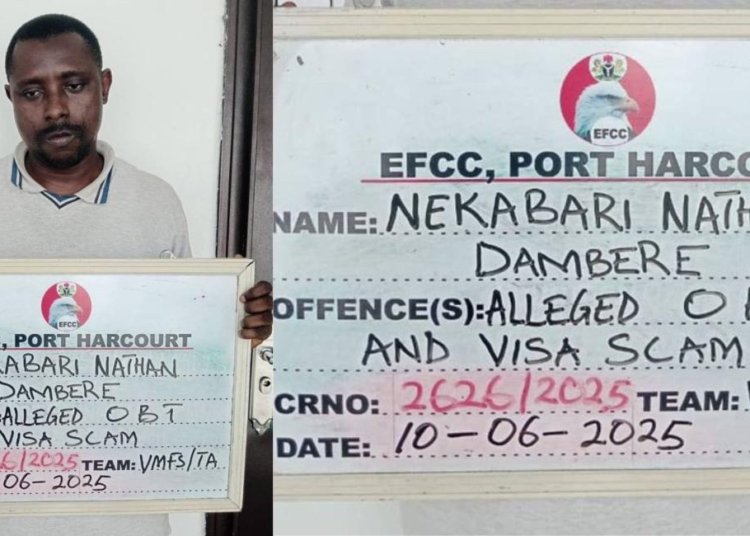 EFCC
, PORT HARCOURT
KABARI NATHAN
DAMBERE
ALLEGED OBT
VISA SCAM
6/2025 TEAM: VMFS/TA
06-2025
EFCC
EFCC, PORT HARCO
NAME: NEKABARI NATH
DAMBERE
OFFENCE(S): ALLEGED O
AND VISA SCAM
CRNO: 2626/2025 TEAM:
DATE: 10-06-2025